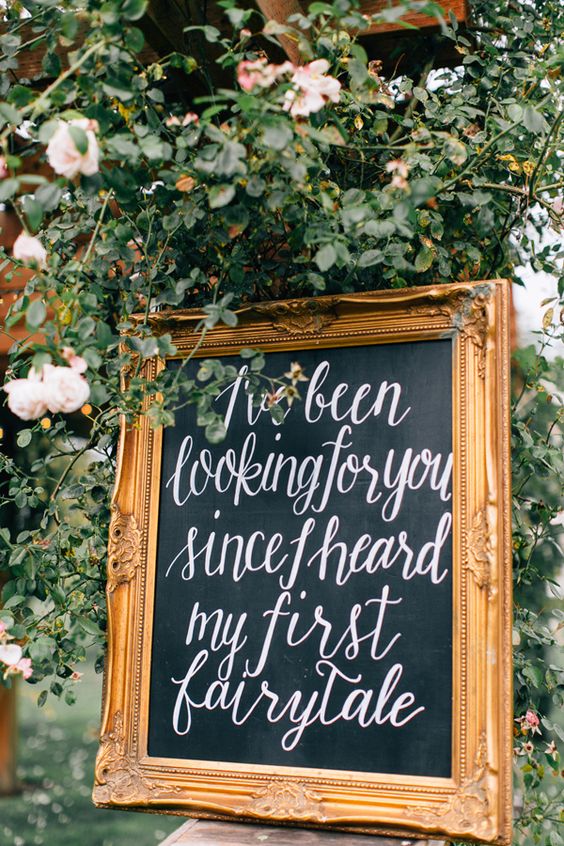 I've been
looking for you
since I heard
my first
fairytale